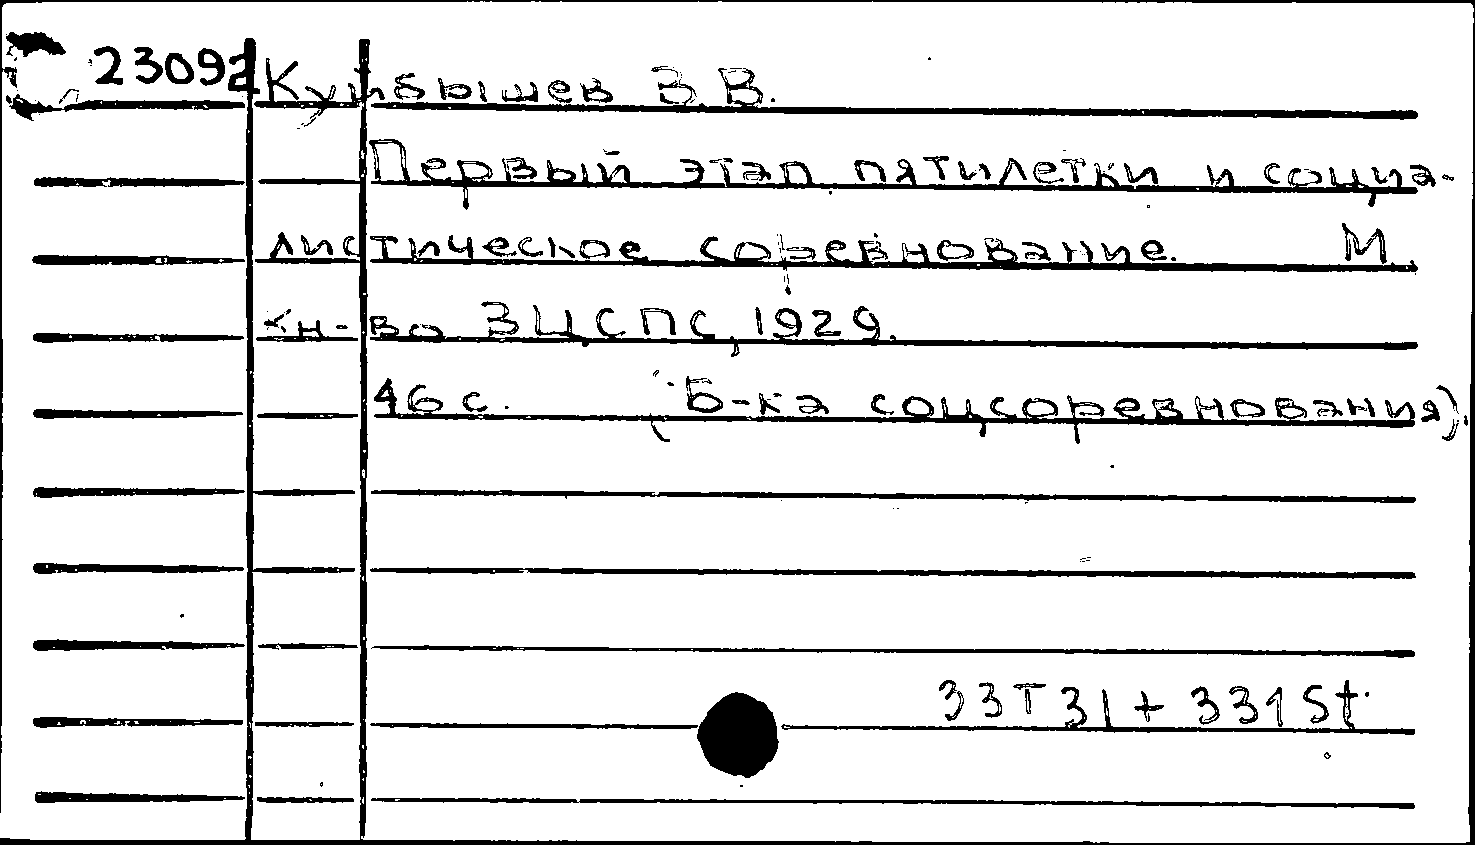 23092 Куйбышев В.В.
Первый этап пятилетки и социа-
листическое соревнование. М.,
кн-во ВЦСПС, 1929.
46 с. (Б-ка соцсоревнования).
33T31 + 331St.